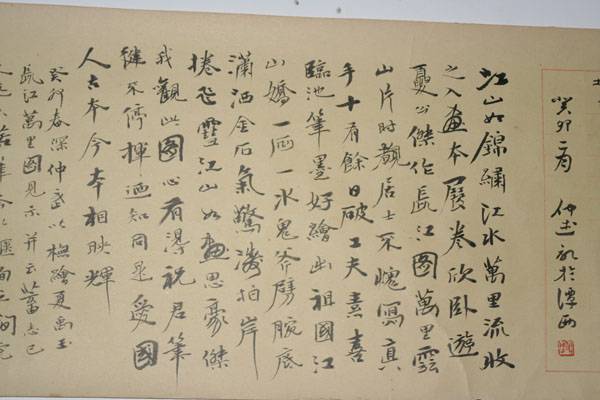 癸卯二月
江山如錦繡江水萬里流收
之入畫本展卷欣臥遊
夏公傑作長江圖萬里雲
山片時覩居士不愧寫真
手十有餘日破工夫素喜
臨池筆墨好繪出祖國江
山嬌一水鬼斧劈腕底
瀟洒金石氣驚濤拍岸
捲飛雪江山如畫思豪傑
我觀此圖心有得祝君筆
健不停揮迺知同是愛國
人古本今本相映輝
癸卯春深仲武以橅繪夏禹玉
長江萬里圖見示并云蓄志已